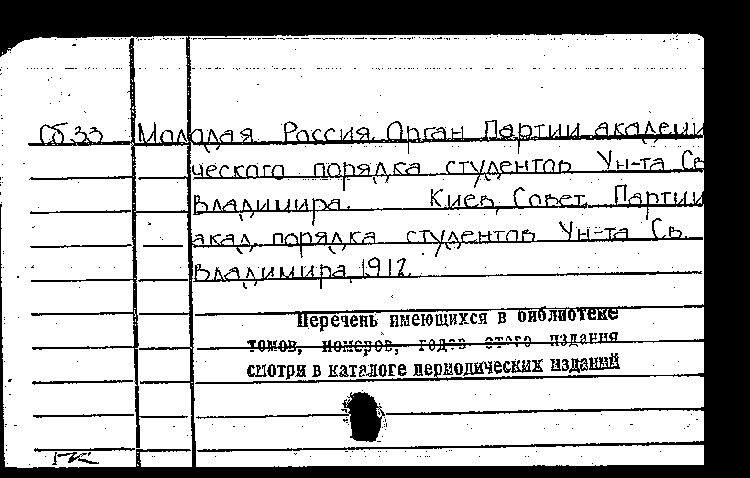 Сб.33 Молодая Россия. Орган Партии академи
ческого порядка студентов Ун-та Св
Владимира. Киев, Совет Партии
акад. порядка студентов Ун-та Св.
Владимира, 1912.
Перечень имеющихся в библиотеке
томов, номеров, годов этого издания
смотри в каталоге периодических изданий
ГК